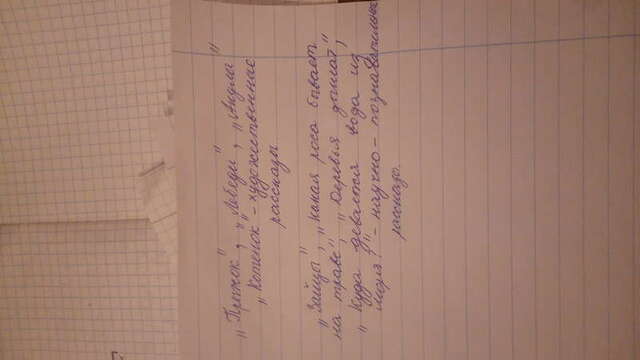 „Прыжок", „Лебеди", „Акула"
„Котенок" - художественные
рассказы
„Зайцы", „Какая роса бывает
на траве", „Деревья дышат",
„Куда девается вода из
моря?" - научно - познавательные
рассказы.